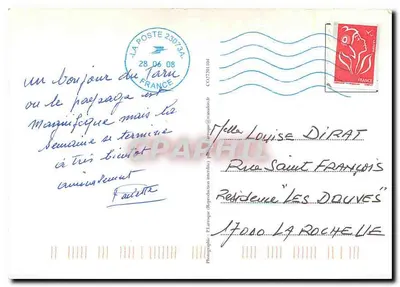 LA POSTE 23073A
28-06-08
FRANCE
un bonjour du Tarn
ou le paysage est
magnifique mais la
semaine se termine
à très bientôt
amicalement
FRANCE
Melle Louise DIRAT
Rue Saint FRANÇOIS
Résidence "LES DOUVES"
17000 LA ROCHELLE